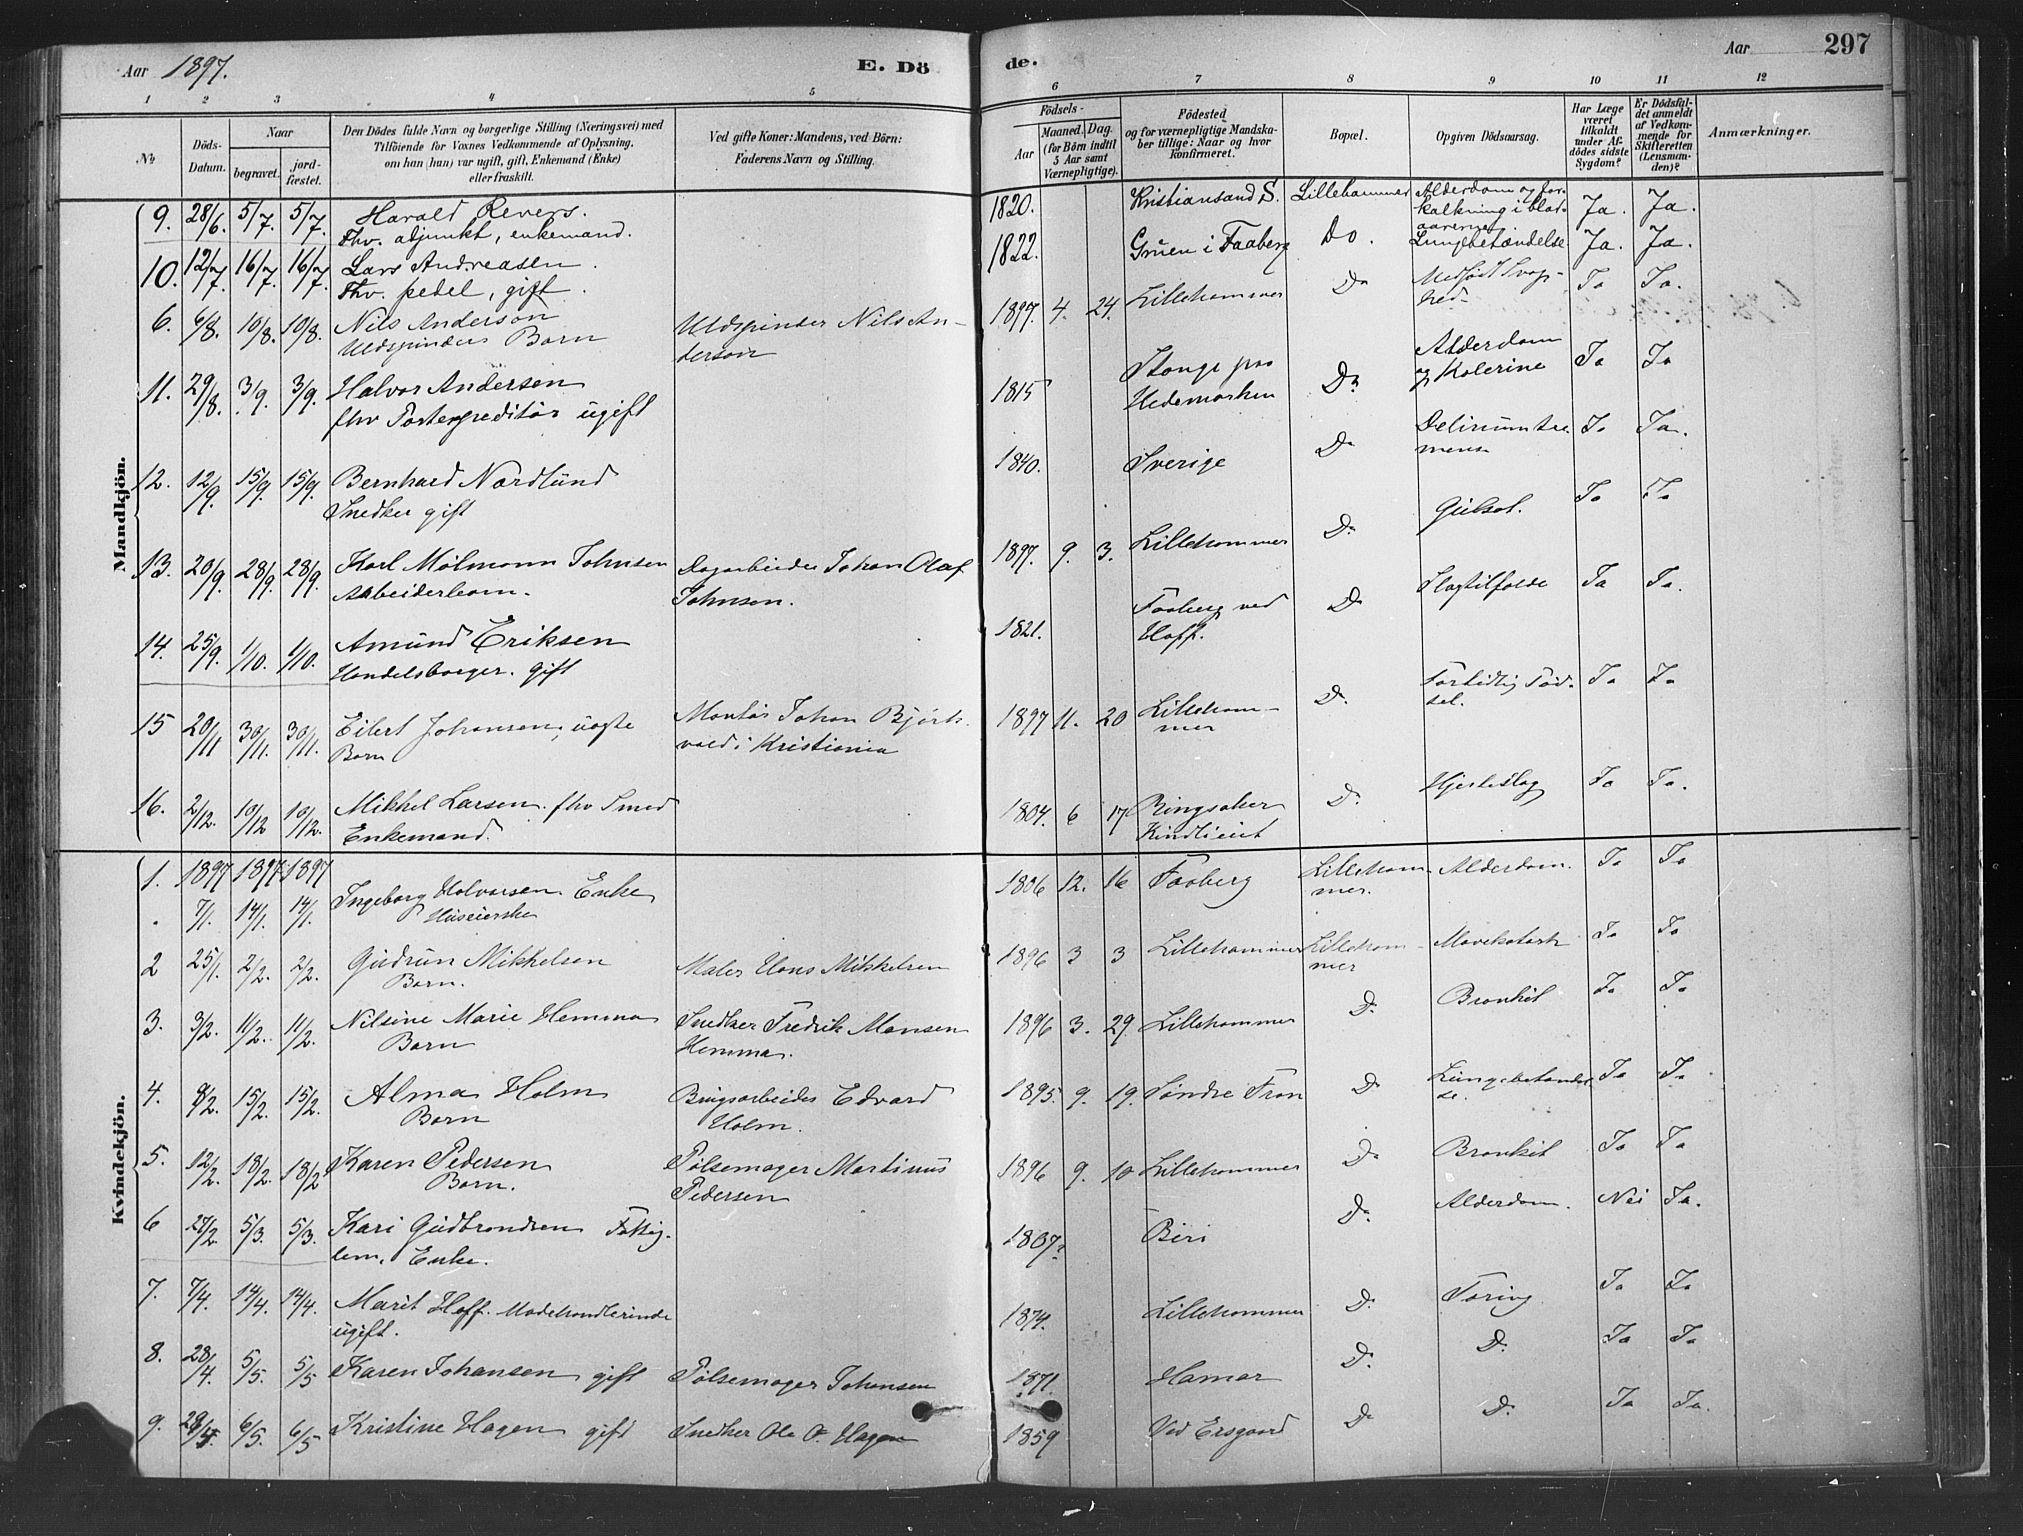 Aar 1897. E. Dö
de. Aar 297
1 2 3 4 5 6 7 8 9 10 11 12
No
Döds-Datum.
Naar
begravet.
jord-fæstet.
Den Dödes fulde Navn og borgerlige Stilling (Næringsvei) med
Tilföiende for Voxnes Vedkommende af Oplysning,
om han (hun) var ugift, gift, Enkemand (Enke)
eller fraskilt.
Ved gifte Koner: Mandens, ved Börn:
Faderens Navn og Stilling.
Födsels-
Aar
Maaned. Dag.
(for Börn indtil
5 Aar samt
Værnepligtige).
Födested
og for værnepligtige Mandska-
ber tillige: Naar og hvor
konfirmeret.
Bopæl.
Opgiven Dödsaarsag.
Har Læge
været
tilkaldt
under Af-
dödes sidste
Sygdom?
Er Dödsfal-
det anmeldt
af Vedkom-
mende for
Skifteretten
(Lensman-
den)?
Anmærkninger.
Mandkjön.
9. 28/6 5/7. 5/7. Harald Revers. 1820. Kristiansand S. Lillehammer Alderdom og for-
Fhv. adjunkt, enkemand. kalkning i blod- Ja. Ja.
aarerne.
10. 12/7. 16/7. 16/7. Lars Andreasen. 1822. Gruen i Faaberg Do. Lungebetændelse Ja. Ja.
Fhv. pedel, gift.
6. 6/8. 10/8. 10/8. Nils Anderson Uldspinder Nils An- 1897. 4. 24. Lillehammer Do Medfødt Svag- Ja Ja.
Uldspinders Barn derson hed
11. 29/8. 3/9. 3/9. Halvor Andersen 1815 Stange paa Do Alderdom Ja Ja
fhv Postexpeditør ugift Hedemarken og Kolerine
12. 12/9. 15/9. 15/9. Bernhard Nordlund 1840. Sverige Do Delirium tre- Ja Ja.
Snedker gift mens
13. 20/9. 28/9. 28/9. Karl Molmann Johnsen Dagarbeider Johan Olaf 1897. 9. 3. Lillehammer Do. Gulsot. Ja Ja
Arbeiderbarn. Johnsen.
14. 25/9. 1/10. 1/10. Amund Eriksen 1821. Faaberg ved Do Slagtilfælde Ja Ja.
Handelsborger. gift Hoff.
15 20/11 30/11. 30/11. Eilert Johansen, uægte Montør Johan Bjørk- 1897 11. 20 Lilleham- Do. Fortidlig Fød- Ja Ja
Barn vold i Kristiania mer sel.
16. 2/12. 10/12 10/12. Mikkel Larsen. fhv Smed 1804. 6 17 Ringsaker Do. Hjerteslag Ja Ja.
Enkemand. Kindlieiet
Kvindekjön.
1. 1897 1897 1897
7/1. 14/1. 14/1. Ingeborg Halvorsen Enke 1806 12. 16 Faaberg Lilleham- Alderdom. Ja Ja
Huseierske mer.
2 25/1. 2/2. 2/2. Gudrun Mikkelsen Maler Hans Mikkelsen 1896 3 3 Lillehammer Lilleham- Mavekatarh Ja Ja
Barn. mer
3. 3/2. 11/2. 11/2. Nilsine Marie Hemma Snedker Fredrik Mansen 1896 3. 29. Lillehammer Do. Bronkit Ja Ja
Barn Hemma.
4. 8/2. 15/2. 15/2. Alma Holm Brugsarbeider Edvard 1895. 9. 19. Søndre Fron Do Lungebetændel- Ja Ja
Barn Holm. se.
5. 12/2. 18/2. 18/2 Karen Pedersen Pølsemager Martinus 1896 9. 10 Lillehammer Do Bronkit Ja Ja
Barn. Pedersen
6 27/2. 5/3. 5/3. Kari Gudbrandsen Fattig- 1807? Biri Do. Alderdom. Nei Ja.
lem, Enke.
7. 7/4. 14/4. 14/4. Marit Hoff. Modehandlerinde 1874. Lillehammer Do. Tæring Ja Ja
ugift.
8. 28/4. 5/5. 5/5 Karen Johansen gift Pølsemager Johansen 1871. Hamar Do. Do. Ja Ja
9. 29/4. 6/5. 6/5 Kristine Hagen gift Snedker Ole O. Hagen 1859 Ved Ersgaard Do Do. Ja Ja.